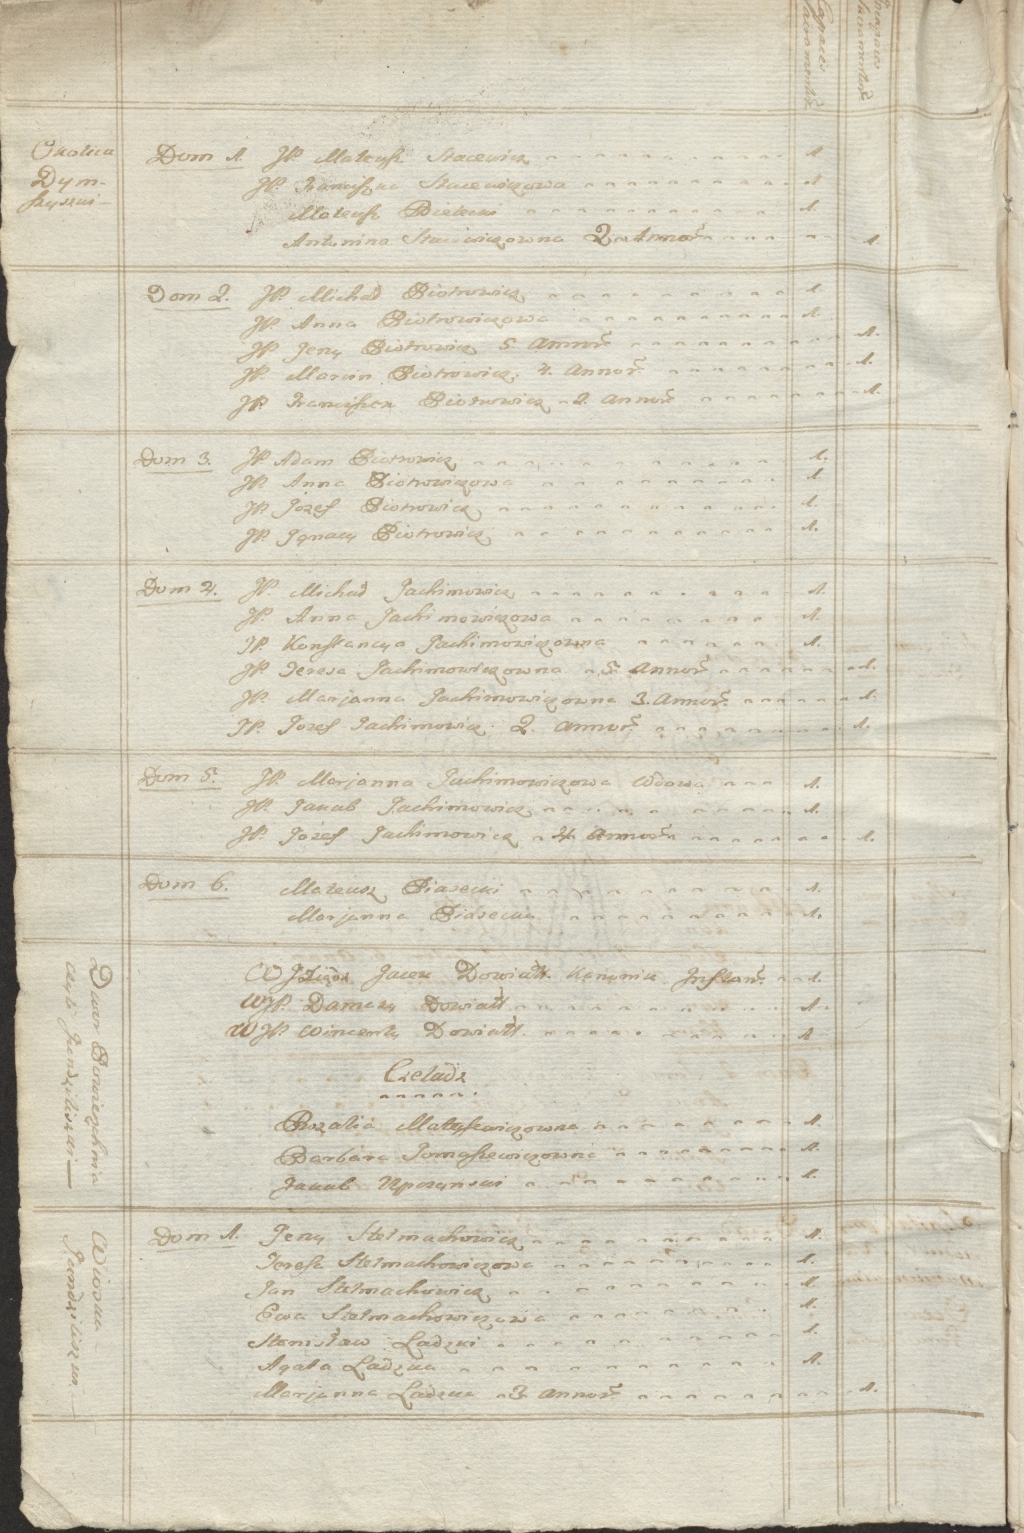 Capaces Sacramentor̃
Incapaces Sacramentor̃
Okolica Dym-
szyszki
Dom 1. JP. Mateusz Stacewicz 1
JP. Franciszka Stacewiczowa 1
Mateusz Bielecki 1.
Antonina Stacewiczowna 2 Annor̃ 1.
Dom 2. JP. Michał Piotrowicz 1
JP. Anna Piotrowiczowa 1.
JP. Jerzy Piotrowicz 5. Annor̃ 1.
JP. Marcin Piotrowicz. 4. Annor̃ 1.
JP. Franciszek Piotrowicz 2. Annor̃ 1.
Dom 3. JP. Adam Piotrowicz 1.
JP. Anna Piotrowiczowa 1
JP. Józef Piotrowicz 1.
JP. Ignacy Piotrowicz 1.
Dom 4. JP. Michał Jachimowicz 1.
JP. Anna Jachimowiczowa 1.
JP. Konstancya Jachimowiczowna 1.
JP. Teresa Jachimowiczowna 5. Annor̃ 1.
JP. Marjanna Jachimowiczowna 3. Annor̃. 1.
JP. Jozef Jachimowicz. 2. Annor̃. 1.
Dom 5. JP. Marjanna Jachimowiczowa Wdowa 1.
JP. Jakub Jachimowicz 1.
JP. Józef Jachimowicz 4 Annor̃ 1.
Dom 6. Mateusz Piasecki 1.
Marjanna Piasecka 1.
Dwor
WJ Xiądz Jacek Dowiatt. Kanonik Inflant. 1.
WJP. Damazy Dowiatt 1.
WJP. Wincenty Dowiatt 1
Czeladz
Rozalia Matysewiczowna 1.
Barbara Tomaszewiczowna 1.
Jakub 1.
Wioska
Dom 1. Jerzy Stelmachowicz 1.
Teresa Stelmachowiczowa 1.
Jan Stelmachowicz 1.
Ewa Stelmachowiczowa 1.
Stanisław Ladzki 1.
Agata Ladzka 1.
Marjanna Ladzka 3 Annor̃ 1.